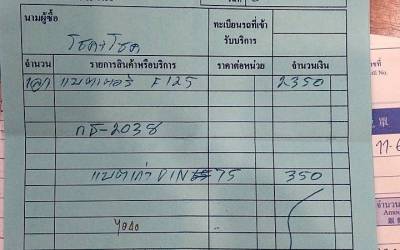 วันที่
นามผู้ซื้อ
โชค+โชค
ทะเบียนรถที่เข้า
รับบริการ
จำนวน รายการสินค้าหรือบริการ ราคาต่อหน่วย จำนวนเงิน
1ลูก แบตเตอรี่ F125 2350
กธ-2038
แบตเก่า DIN 75 350
ที่
ll No.
單
11-6
จำนวน
Amou
銀